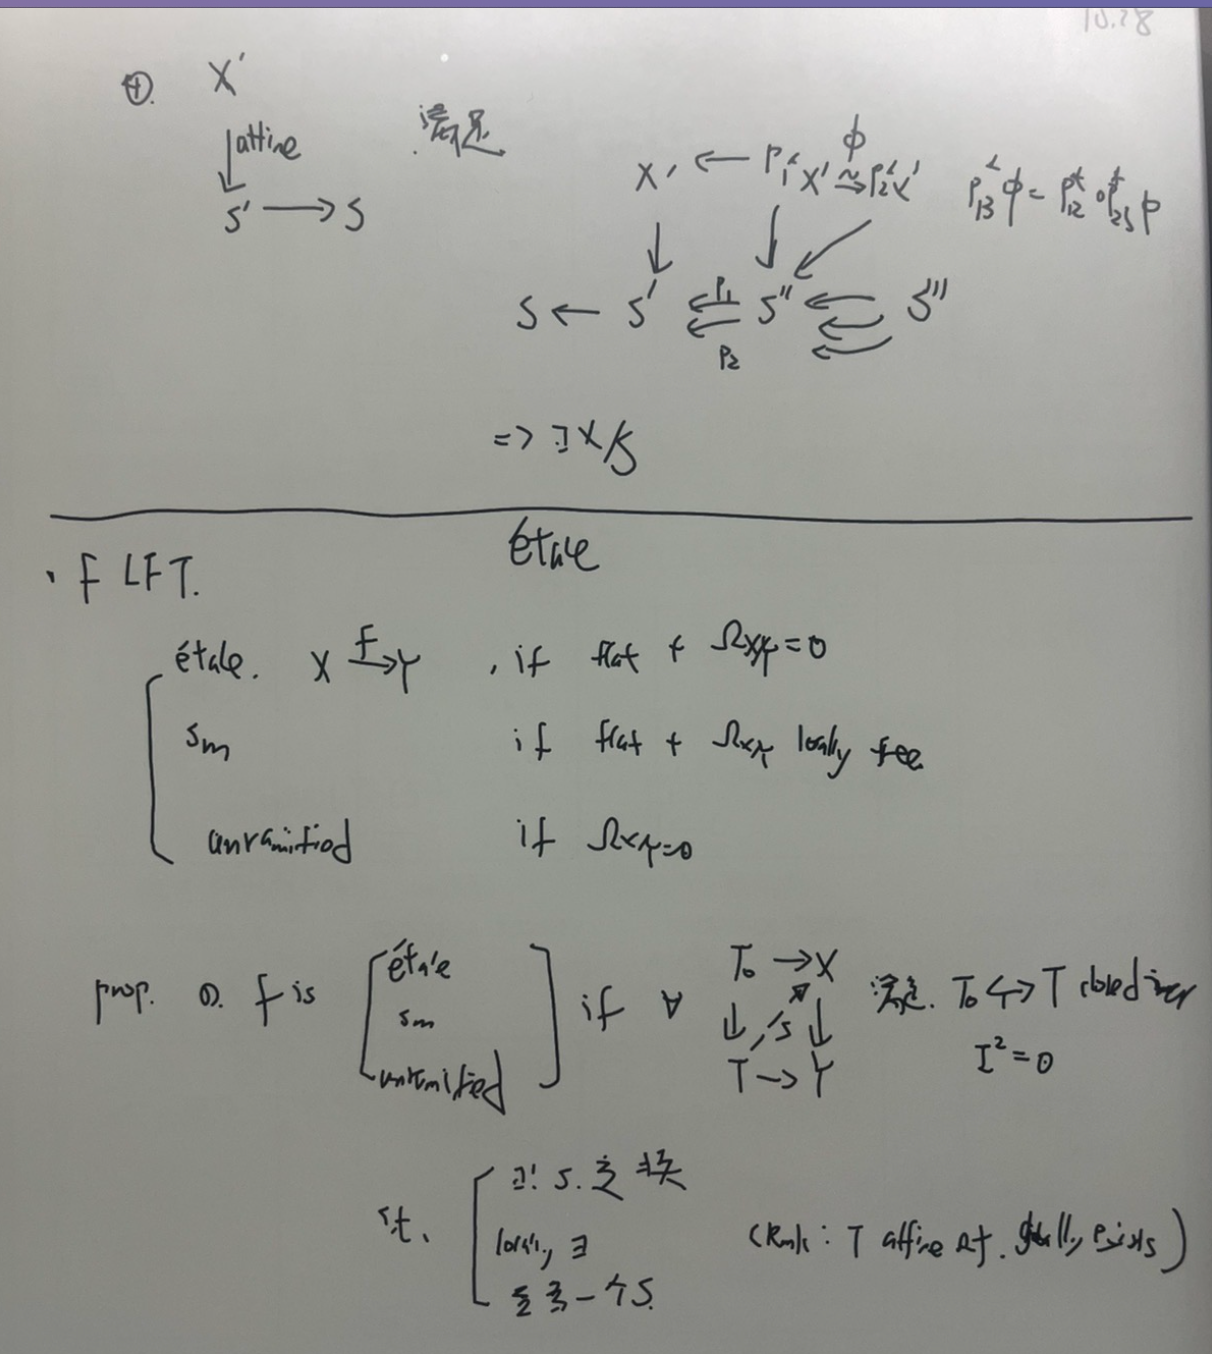 10.28
④. X'
↓ affine 满足
S' → S
X' ← p₁*X' ≃ p₂*X' ϕ p₁₃*ϕ = p₁₂* ∘ p₂₃*ϕ
S ← S' ⇇ S'' S'''
p₁
p₂
=> ∃ X/S
étale
· f LFT.
étale. X →f Y , if flat + Ω_{X/Y} = 0
sm if flat + Ω_{X/Y} locally free
unramified if Ω_{X/Y} = 0
prop. ①. f is [ étale
sm
unramified ] if ∀ T₀ → X
↓ s ↓
T → Y
满足. T₀ ↪ T closed imm
I² = 0
st. [ ∃! s. 交换
locally ∃
至多一个 s.
(Rmk: T affine 时. globally exists)